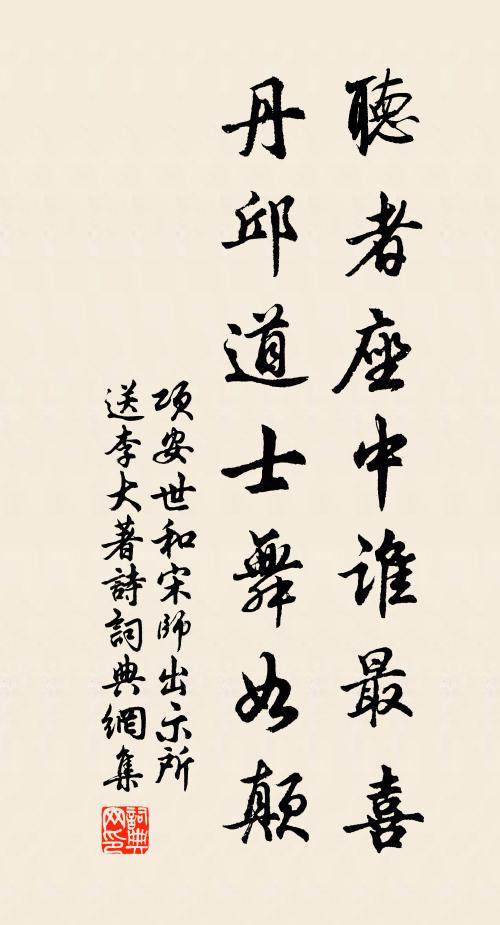 聽者座中誰最喜
丹邱道士舞如顛
項安世和宋師出示所
送李大著詩詞典網集
詞典网印